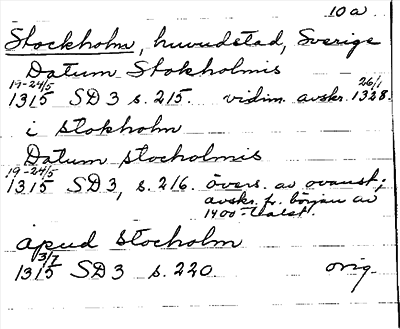 10a
Stockholm, huvudstad, Sverige
Datum Stokholmis
19-24/5 26/1
1315 SD 3 s. 215. vidim. avskr. 1328.
i stokholm
Datum stocholmis
19-24/5
1315 SD 3, s. 216. övers. av ovanst.;
avskr. fr. början av
1400-talet.
apud stocholm
3/7
1315 SD 3 s. 220. orig.